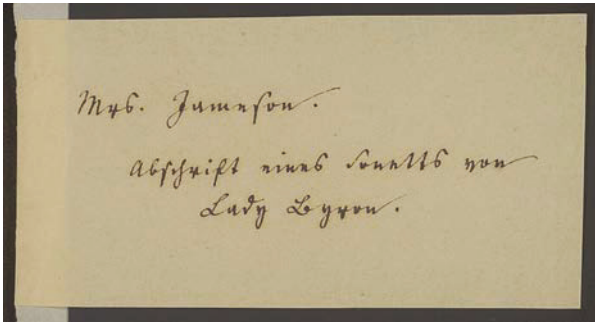 Mrs. Jameson.
Abschrift eines Sonetts von
Lady Byron.